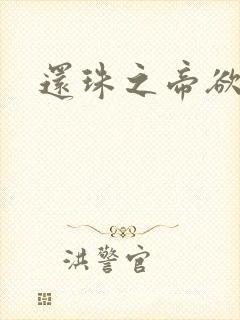 還珠之帝欲
洪警官